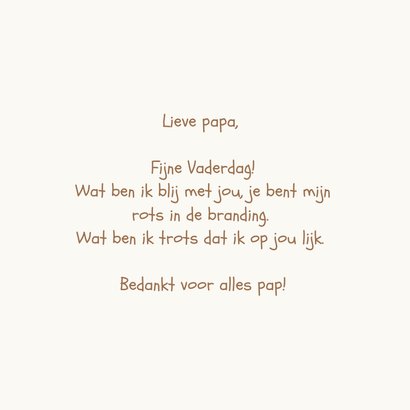 Lieve papa,
Fijne Vaderdag!
Wat ben ik blij met jou, je bent mijn
rots in de branding.
Wat ben ik trots dat ik op jou lijk.
Bedankt voor alles pap!